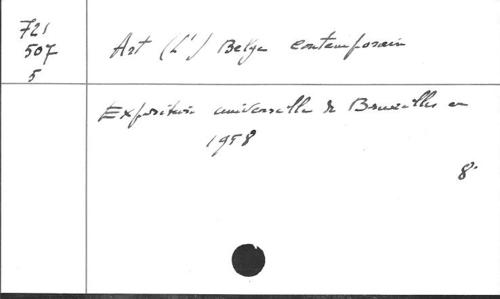 721
507
5
Art (L') Belge contemporain
Exposition universelle de Bruxelles en
1958
8°